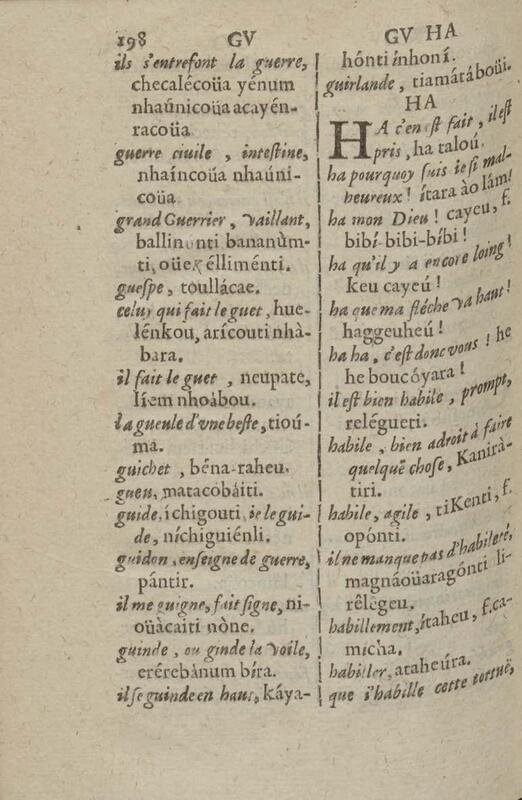 198 GV
ils s'entrefont la guerre,
checalécoüa yénum
nhaúnicoüa acayén-
racoüa
guerre ciuile, intestine,
nhaíncoüa nhaúni-
coüa
grand Guerrier, vaillant,
ballinonti bananùm-
ti, oüe élliménti.
guespe, toullácae.
celuy qui fait le guet, hue-
lénkou, arícouti nhà-
bara.
il fait le guet, neupate,
líem nhoábou.
la gueule d'vne beste, tioú-
ma.
guichet, béna-raheu.
gueu, matacobáiti.
guide, ichigouti, ie le gui-
de, níchiguiénli.
guidon, enseigne de guerre,
pántir.
il me guigne, fait signe, ni-
oüàcaiti nòne.
guinde, ou ginde la voile,
erérebànum bíra.
il se guinde en haut, káya-
GV HA
hónti ínhoní.
guirlande, tiamátáboüi.
HA
HA c'en est fait, il est
pris, ha talou.
ha pourquoy suis ie si mal-
heureux! ítara ào lám!
ha mon Dieu! cayeu, f.
bibí-bibi-bíbi!
ha qu'il y a encore loing!
keu cayeú!
ha que ma fléche va haut!
haggeuheú!
ha ha, c'est donc vous! he
he boucóyara!
il est bien habile, prompt,
relégueti.
habile, bien adroit à faire
quelquë chose, Kanirà-
tiri.
habile, agile, tiKenti, f.
opónti.
il ne manque pas d'habileté,
magnáoüaragónti li-
rêlegeu.
habillement, ítaheu, f. ca-
mícha.
habiller, ataheúra.
que i'habille cette tortuë,